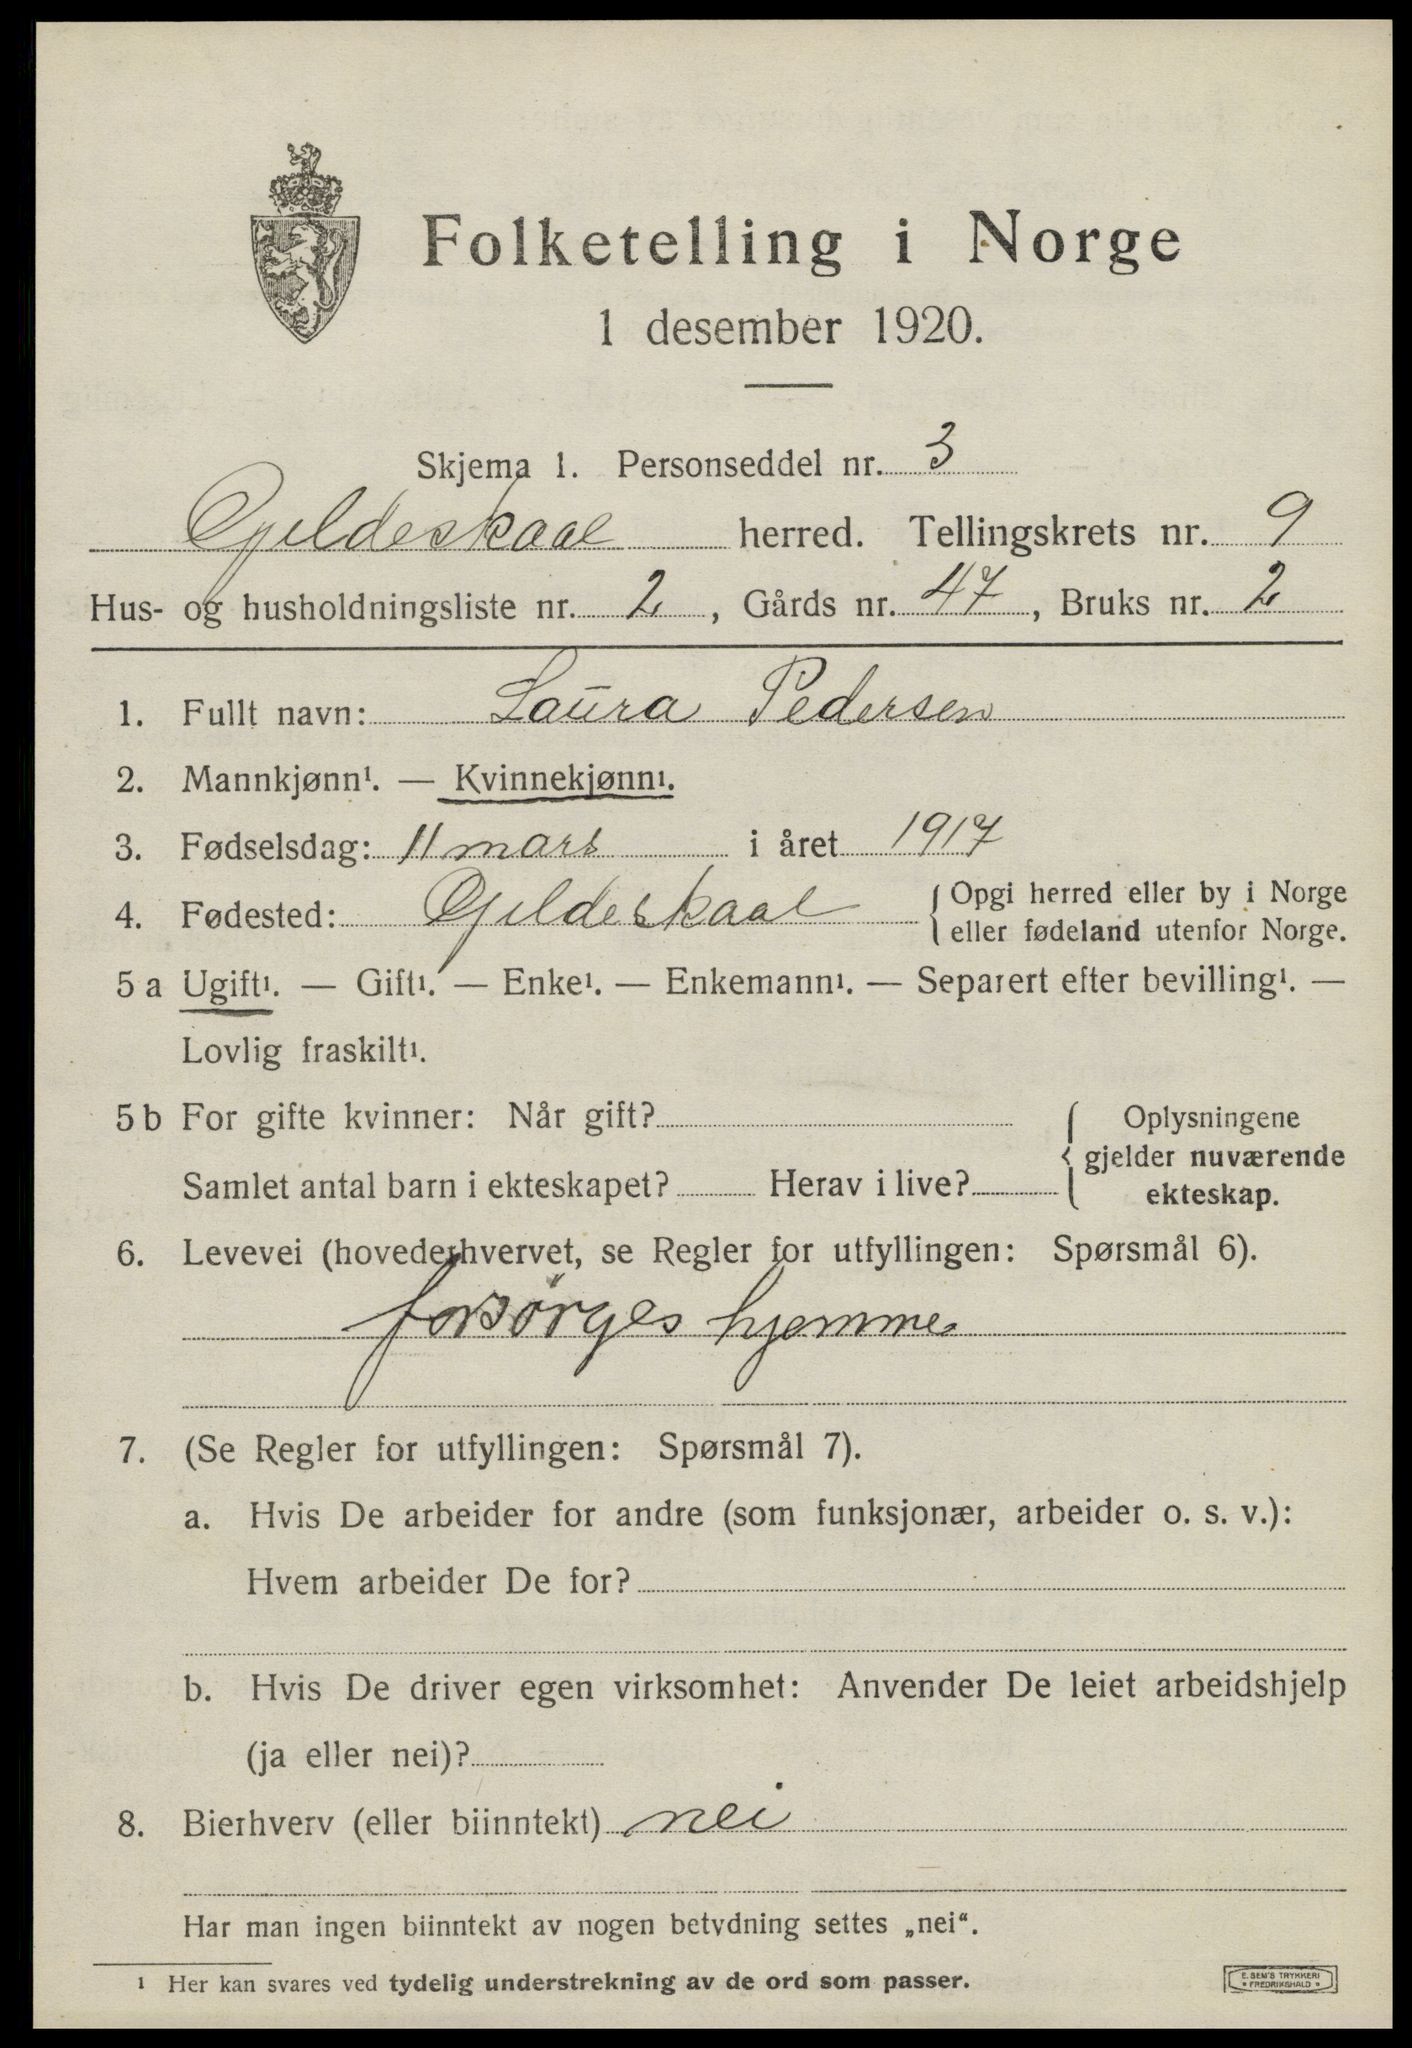 Folketelling i Norge
1 desember 1920.
Skjema 1. Personseddel nr. 3
Gjeldeskaal herred. Tellingskrets nr. 9
Hus- og husholdningsliste nr. 2, Gårds nr. 47, Bruks nr. 2
1. Fullt navn: Laura Pedersen
2. Mannkjønn¹. — Kvinnekjønn¹.
3. Fødselsdag: 11 mars i året 1917
4. Fødested: Gjeldeskaal {Opgi herred eller by i Norge
eller fødeland utenfor Norge.
5 a Ugift¹. — Gift¹. — Enke¹. — Enkemann¹. — Separert efter bevilling¹. —
Lovlig fraskilt¹.
5 b For gifte kvinner: Når gift? { Oplysningene
gjelder nuværende
Samlet antal barn i ekteskapet? Herav i live? ekteskap.
6. Levevei (hovederhvervet, se Regler for utfyllingen: Spørsmål 6).
forsørges hjemme
7. (Se Regler for utfyllingen: Spørsmål 7).
a. Hvis De arbeider for andre (som funksjonær, arbeider o. s. v.):
Hvem arbeider De for?
b. Hvis De driver egen virksomhet: Anvender De leiet arbeidshjelp
(ja eller nei)?
8. Bierhverv (eller biinntekt) nei
Har man ingen biinntekt av nogen betydning settes „nei“.
¹ Her kan svares ved tydelig understrekning av de ord som passer.
E. SEM'S TRYKKERI
* FREDRIKSHALD *